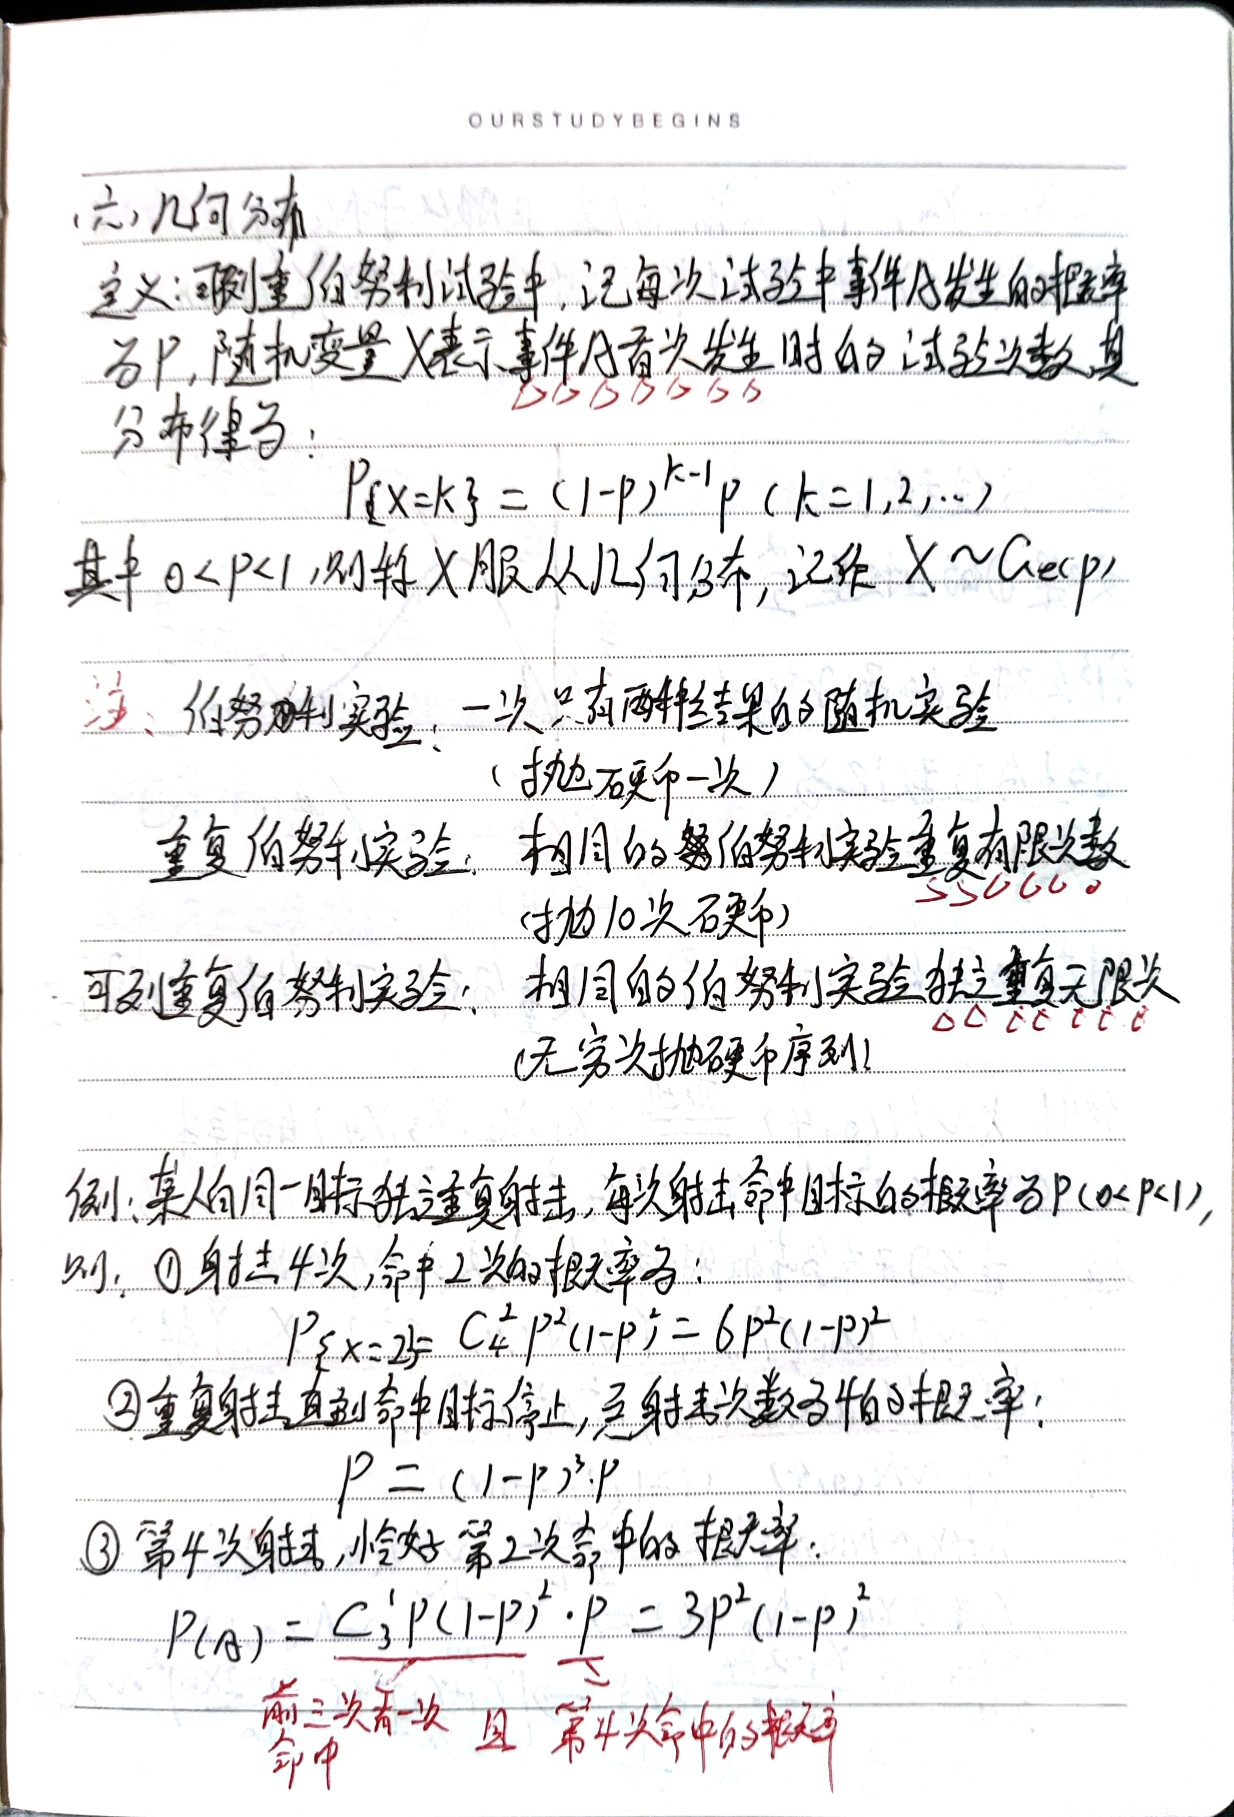 OURSTUDYBEGINS
(六)几何分布
定义:可列重伯努利试验中,记每次试验中事件A发生的概率
为P,随机变量X表示事件A首次发生时的试验次数,其
分布律为:
P{X=k} = (1-p)^{k-1} p (k=1,2,…)
其中 0<P<1,则称X服从几何分布,记作 X~Ge(p)
注: 伯努利实验: 一次只有两种结果的随机实验
(抛硬币一次)
重复伯努利实验: 相同的伯努利实验重复有限次数
(抛10次硬币)
可列重复伯努利实验: 相同的伯努利实验独立重复无限次
(无穷次抛硬币序列)
例:某人向同一目标独立重复射击,每次射击命中目标的概率为P(0<P<1),
则: ①射击4次,命中2次的概率为:
P{X=2}= C₄² P²(1-P)² = 6P²(1-P)²
②重复射击直到命中目标停止,总射击次数为4的概率:
P = (1-P)³·P
③第4次射击,恰好第2次命中的概率:
P(A) = C₃¹P(1-P)²·P = 3P²(1-P)²
前三次有一次 且 第4次命中的概率
命中